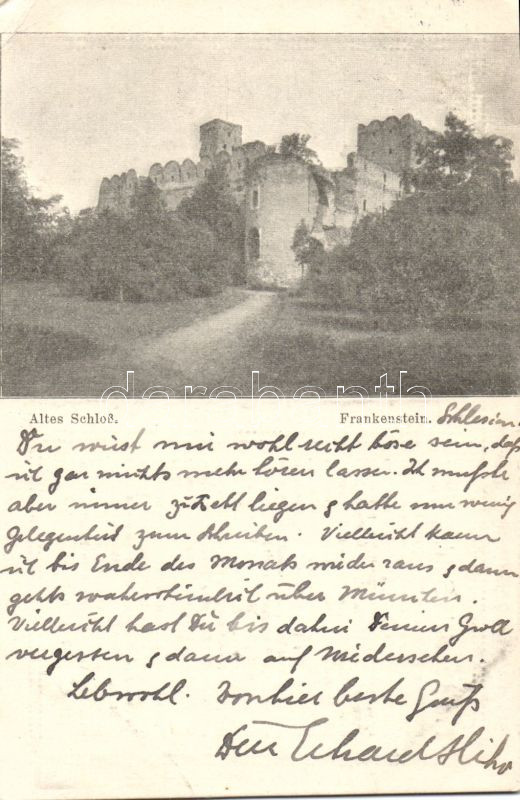 Altes Schloß. Frankenstein. Schlesien.
Du wirst mir wohl recht böse sein, daß
ich gar nichts mehr hören lasse. Ich mußte
aber immer zu Bett liegen & hatte nur wenig
Gelegenheit zum Schreiben. Vielleicht kann
ich bis Ende des Monats wieder raus & dann
gehts wahrscheinlich über München.
Vielleicht hast Du bis dahin Deinen Groll
vergessen & dann auf Wiedersehen.
Lebwohl. Von hier beste Grüß
Dein Erhard
darabanth